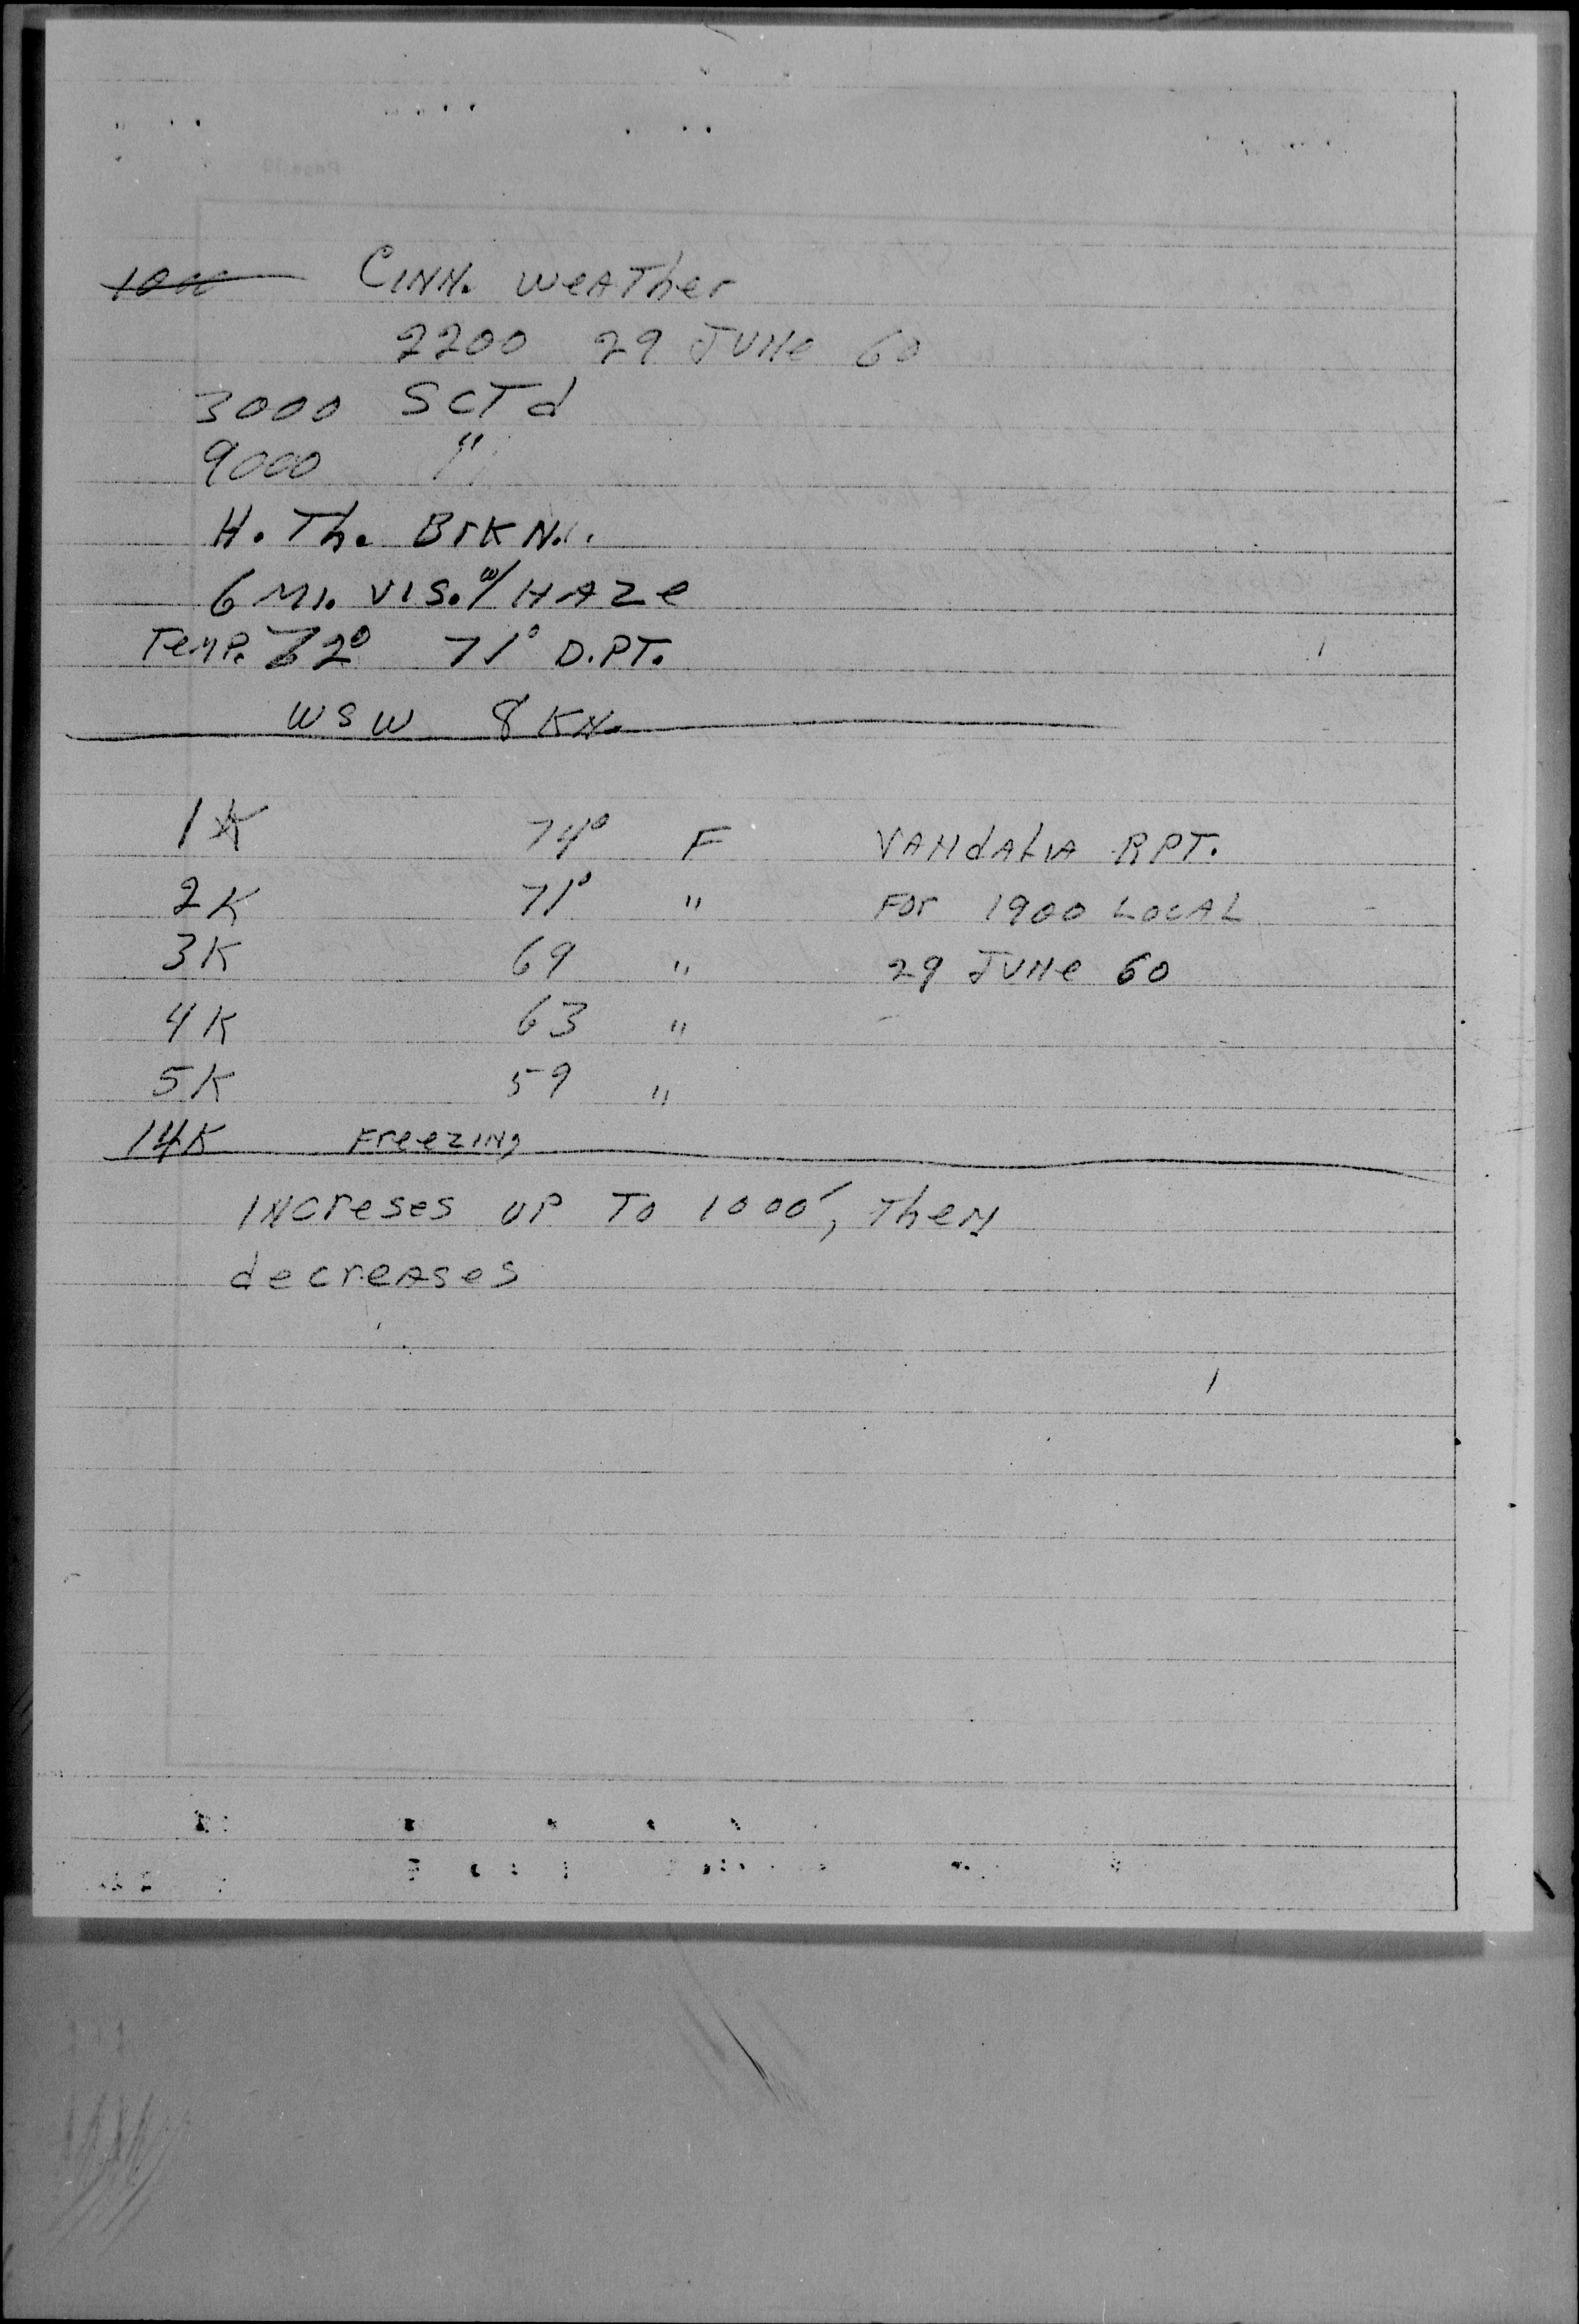 CINN. WEATher
2200 29 JUNe 60
3000 SCTd
9000 "
H. Th. BrKN.
6 MI. VIS. w/ HAZe
TeMP. 72° 71° D.PT.
WSW 8 KN.
1K 74° F VANdALIA RPT.
2K 71° " For 1900 LOCAL
3K 69 " 29 JUNe 60
4K 63 "
5K 59 "
14K FreezINg
INCreSes UP TO 1000', TheN
decreASes